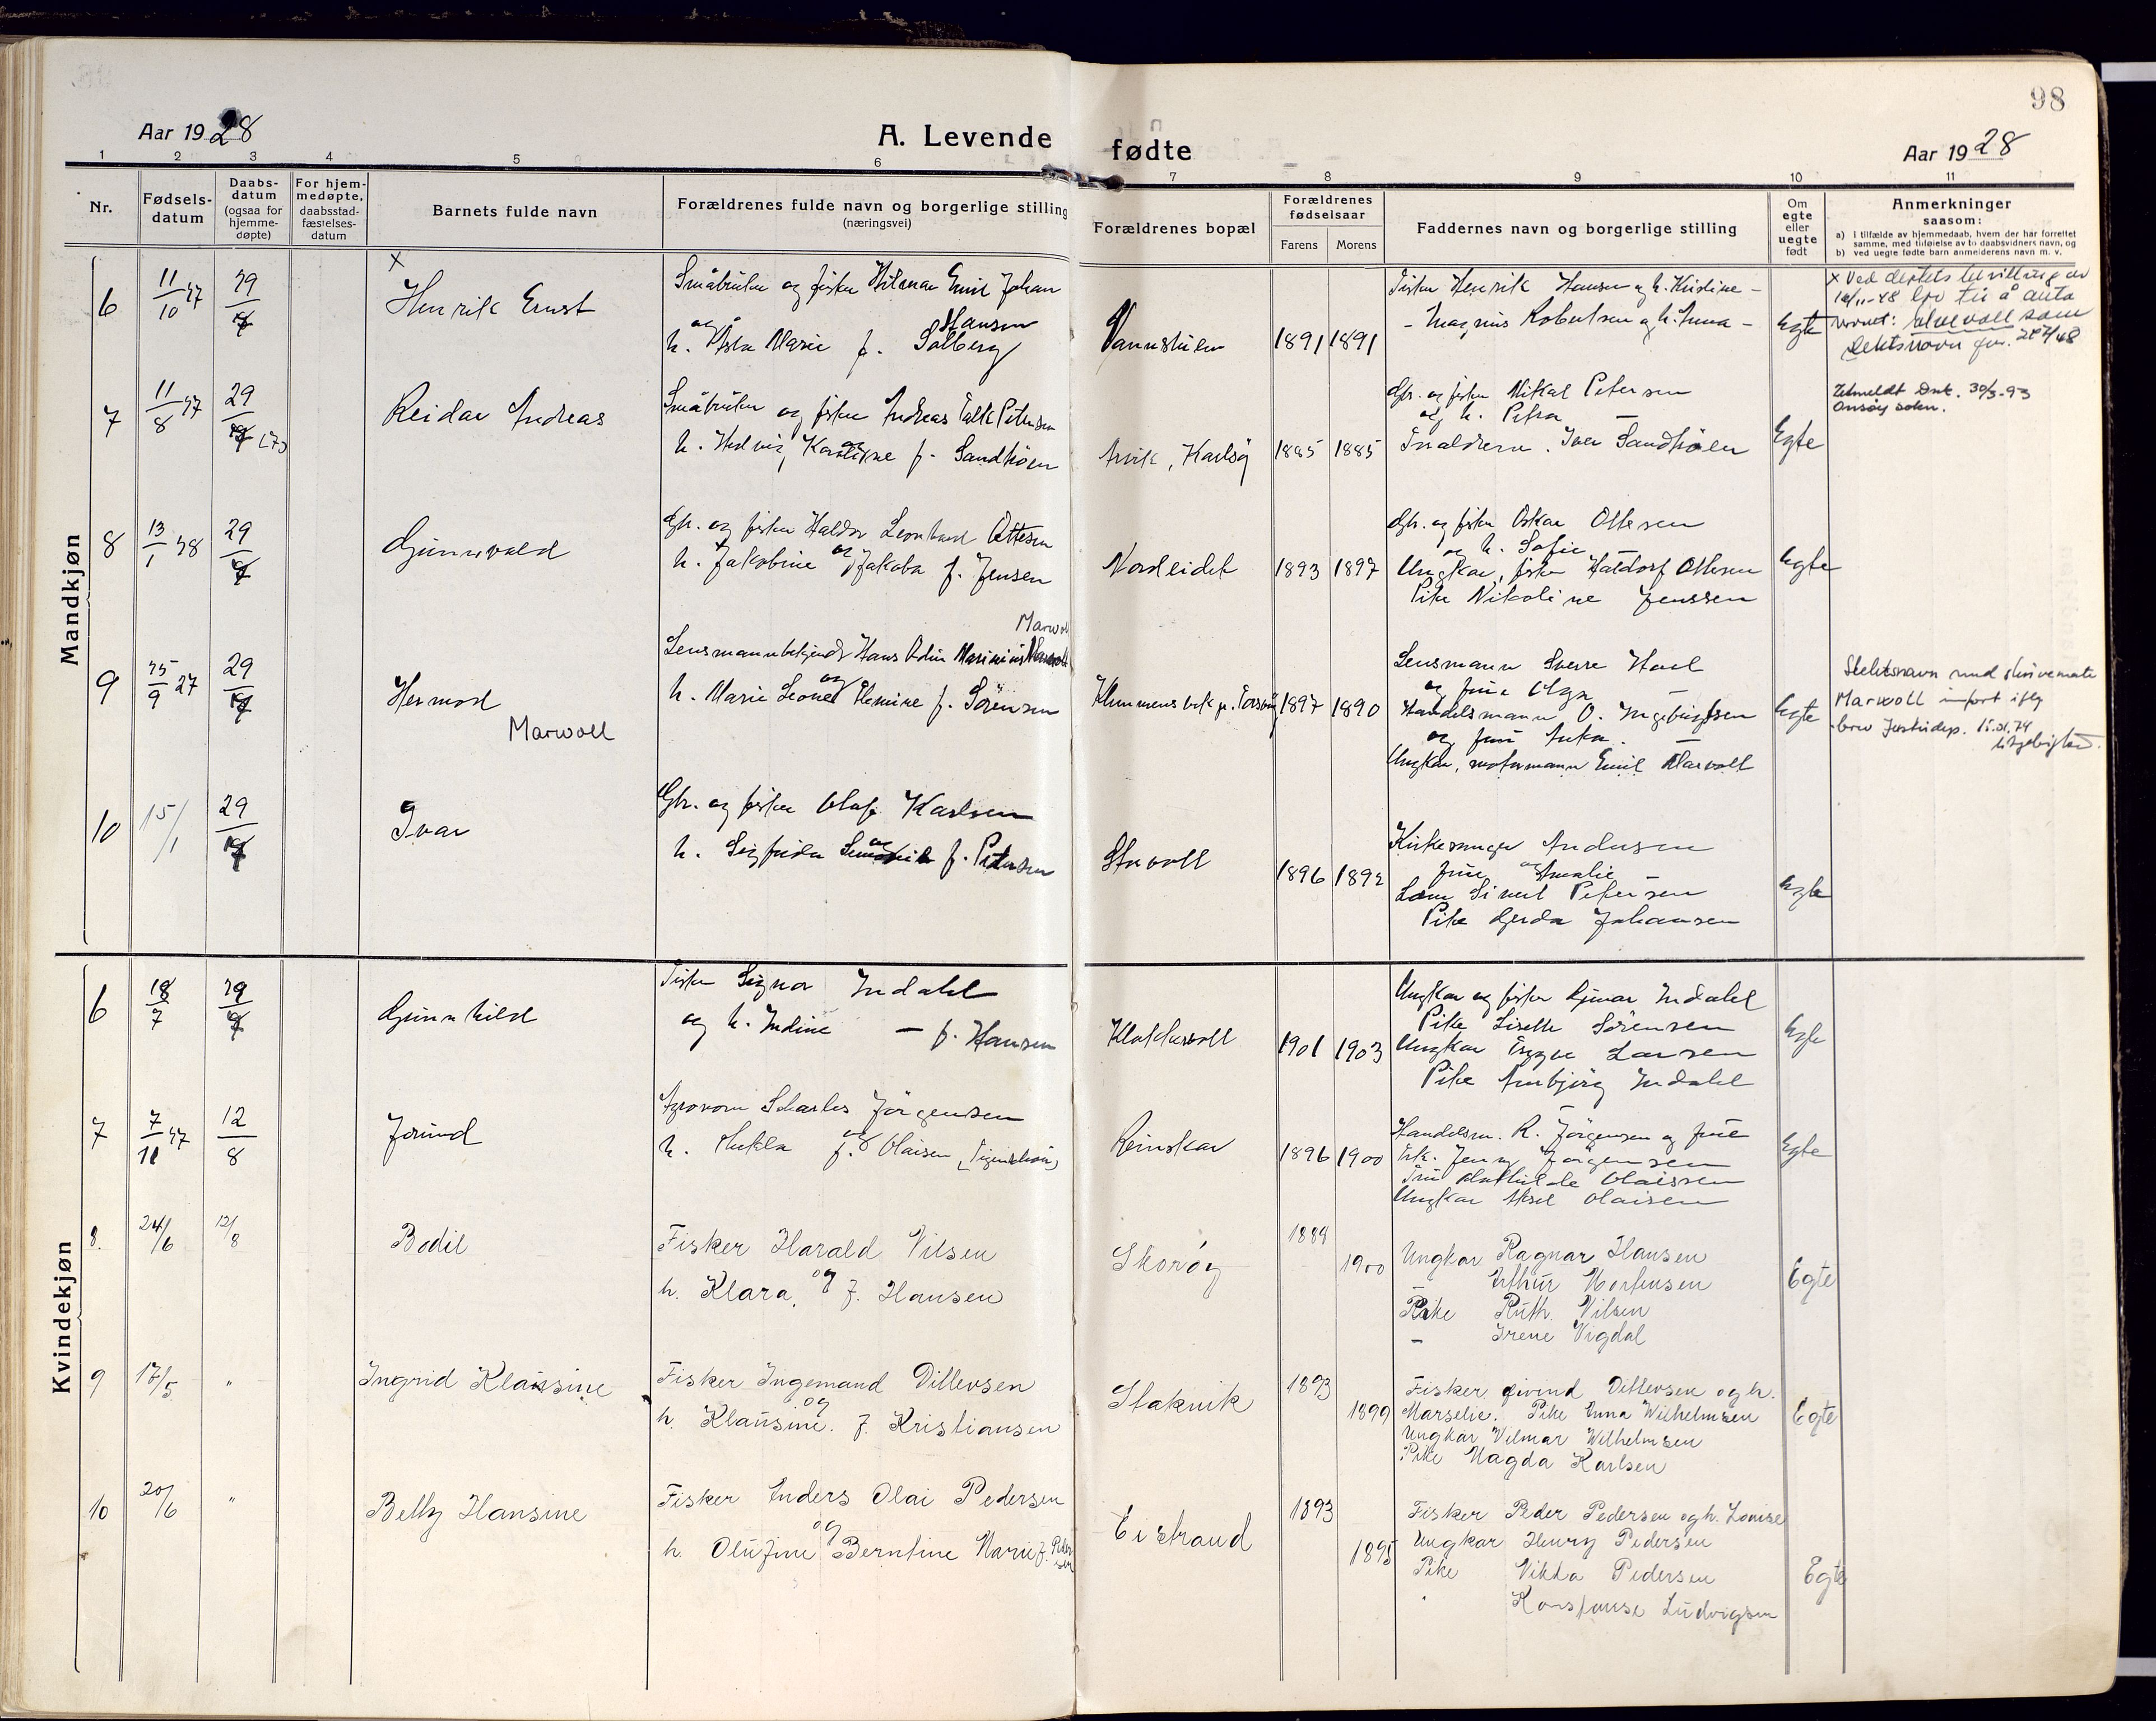 98
Aar 1928
A. Levende fødte
Aar 1928
1 2 3 4 5 6 7 8 9 10 11
Nr.
Fødsels-
datum
Daabs-
datum
(ogsaa for
hjemme-
døpte)
For hjem-
medøpte,
daabsstad-
fæstelses-
datum
Barnets fulde navn
Forældrenes fulde navn og borgerlige stilling
(næringsvei)
Forældrenes bopæl
Forældrenes
fødselsaar
Farens Morens
Faddernes navn og borgerlige stilling
Om
egte
eller
uegte
født
Anmerkninger
saasom:
a) i tilfælde av hjemmedaab, hvem der har forrettet
samme, med tilføielse av to daabsvidners navn, og
b) ved uegte fødte barn anmelderens navn m. v.
Mandkjøn
6
11/10 27
29
x
Henrik Ernst
Småbruker og fisker Hilmar Emil Johan
Hansen
og
h. Asta Marie f. Solberg
1891 1891
Fisker Henrik Hansen og h. Kristine -
- Magnus Robertsen og h. Anna -
Egte
7
11/8 27
29
Reidar Andreas
Småbruker og fisker Andreas Falk Petersen
og
h. Hedvig Karoline f. Sandhöen
Arvik, Karlsöy
1885 1885
Gbr. og fisker Mikal Petersen
og h. Petra —
Iver Sandhölen
Egte
Utmeldt Dnk. 30/3-93
Onsøy sokn.
8
13/1 28
29
Gunnvald
Gbr. og fisker Haldor Leonhard Ottesen
og
h. Jakobine Jakoba f. Jensen
Nordeidet
1893 1897
Gbr. og fisker Oskar Ottesen
og h. Sofie —
Ungkar, fisker Haldorf Ottesen
Pike Nikoline Jenssen
Egte
9
25/9 27
29
Hermod
Marwoll
Marwoll
Lensmannbetjendt Hans Odin Marinius
og
h. Marie Leonel Elemine f. Sörensen
1897 1890
Lensmann Sverre Hoel
og frue Olga —
Handelsmann O. Ingebrigtsen
og frue Anka —
Ungkar, motormann Emil Marvoll
Egte
Slektsnavn med skrivemåte
Marwoll innført iflg
brev Justisdep. 15.01.74
10
15/1
29
Ivar
Gbr. og fisker Olaf Karlsen
og
h. Sigfrida f. Petersen
Storvoll
1896 1892
Kirkesanger Andersen
og
frue Amalie —
Sivert Petersen
Pike Gerda Johansen
Egte
Kvindekjøn
6
18/7
29
Gunnhild
Fisker Signor Indahl
og h. Indine — f. Hansen
1901 1903
Ungkar og fisker Gunnar Indahl
Pike Liselle Sörensen
Ungkar Trygve Larsen
Pike Annbjörg Indahl
Egte
7
7/11 27
12/8
Jorund
Agronom Scharles Jörgensen
og
h. Thekla f. Olaisen
Reinskar
1896 1900
Handelsm. R. Jörgensen og frue
Frk. Jenny Jörgensen
Fru Mathilde Olaissen
Ungkar Aksel Olaisen
Egte
8.
24/6
12/8
Bodil
Fisker Harald Nilsen
og
h. Klara, f. Hansen
Skoröy
1888
1900
Ungkar Ragnar Hansen
— Arthur Mortensen
Pike Ruth Nilsen
— Irene Vigdal
Egte
9
17/5
"
Ingrid Klausine
Fisker Ingemand Ditlevsen
og
h. Klausine. f. Kristiansen
Slaknik
1893
1899
Fisker Eivind Ditlevsen og h.
Marselie. Pike Enna Wilhelmsen
Ungkar Vilmar Wilhelmsen
Pike Magda Karlsen
Egte
10
20/6
"
Betty Hansine
Fisker Anders Olai Pedersen
og
h. Olufine Berntine Marie f. Peder
sen
Eistrand
1893
1895
Fisker Peder Pedersen og h. Lovise
Ungkar Henry Pedersen
Pike Vikka Pedersen
" Konstanse Ludvigsen
Egte